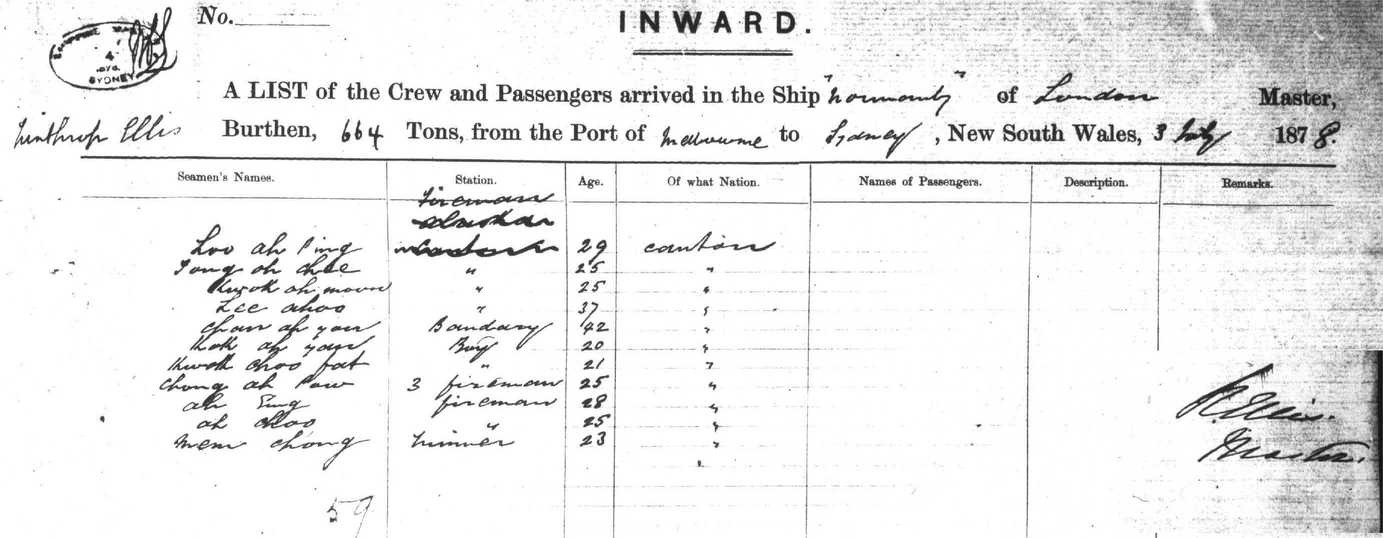 No.
INWARD.
SYDNEY
A LIST of the Crew and Passengers arrived in the Ship "Normanby" of London Master,
Winthrop Ellis Burthen, 664 Tons, from the Port of Melbourne to Sydney, New South Wales, 3 July 1878.
Seamen's Names. Station. Age. Of what Nation. Names of Passengers. Description. Remarks.
Fireman
Loo ah Ping 29 Canton
Tong ah chee " 25 "
Kwok ah moon " 25 "
Lee ahoo " 37 "
Chan ah yan 42 "
Kok ah yan Boy 20 "
Kwok choo fat " 21 "
Chong ah Pow 3 fireman 25 "
ah fireman 28 "
ah " 25 "
Mem Chong Trimmer 23 "
"
Ellis
Master.
59